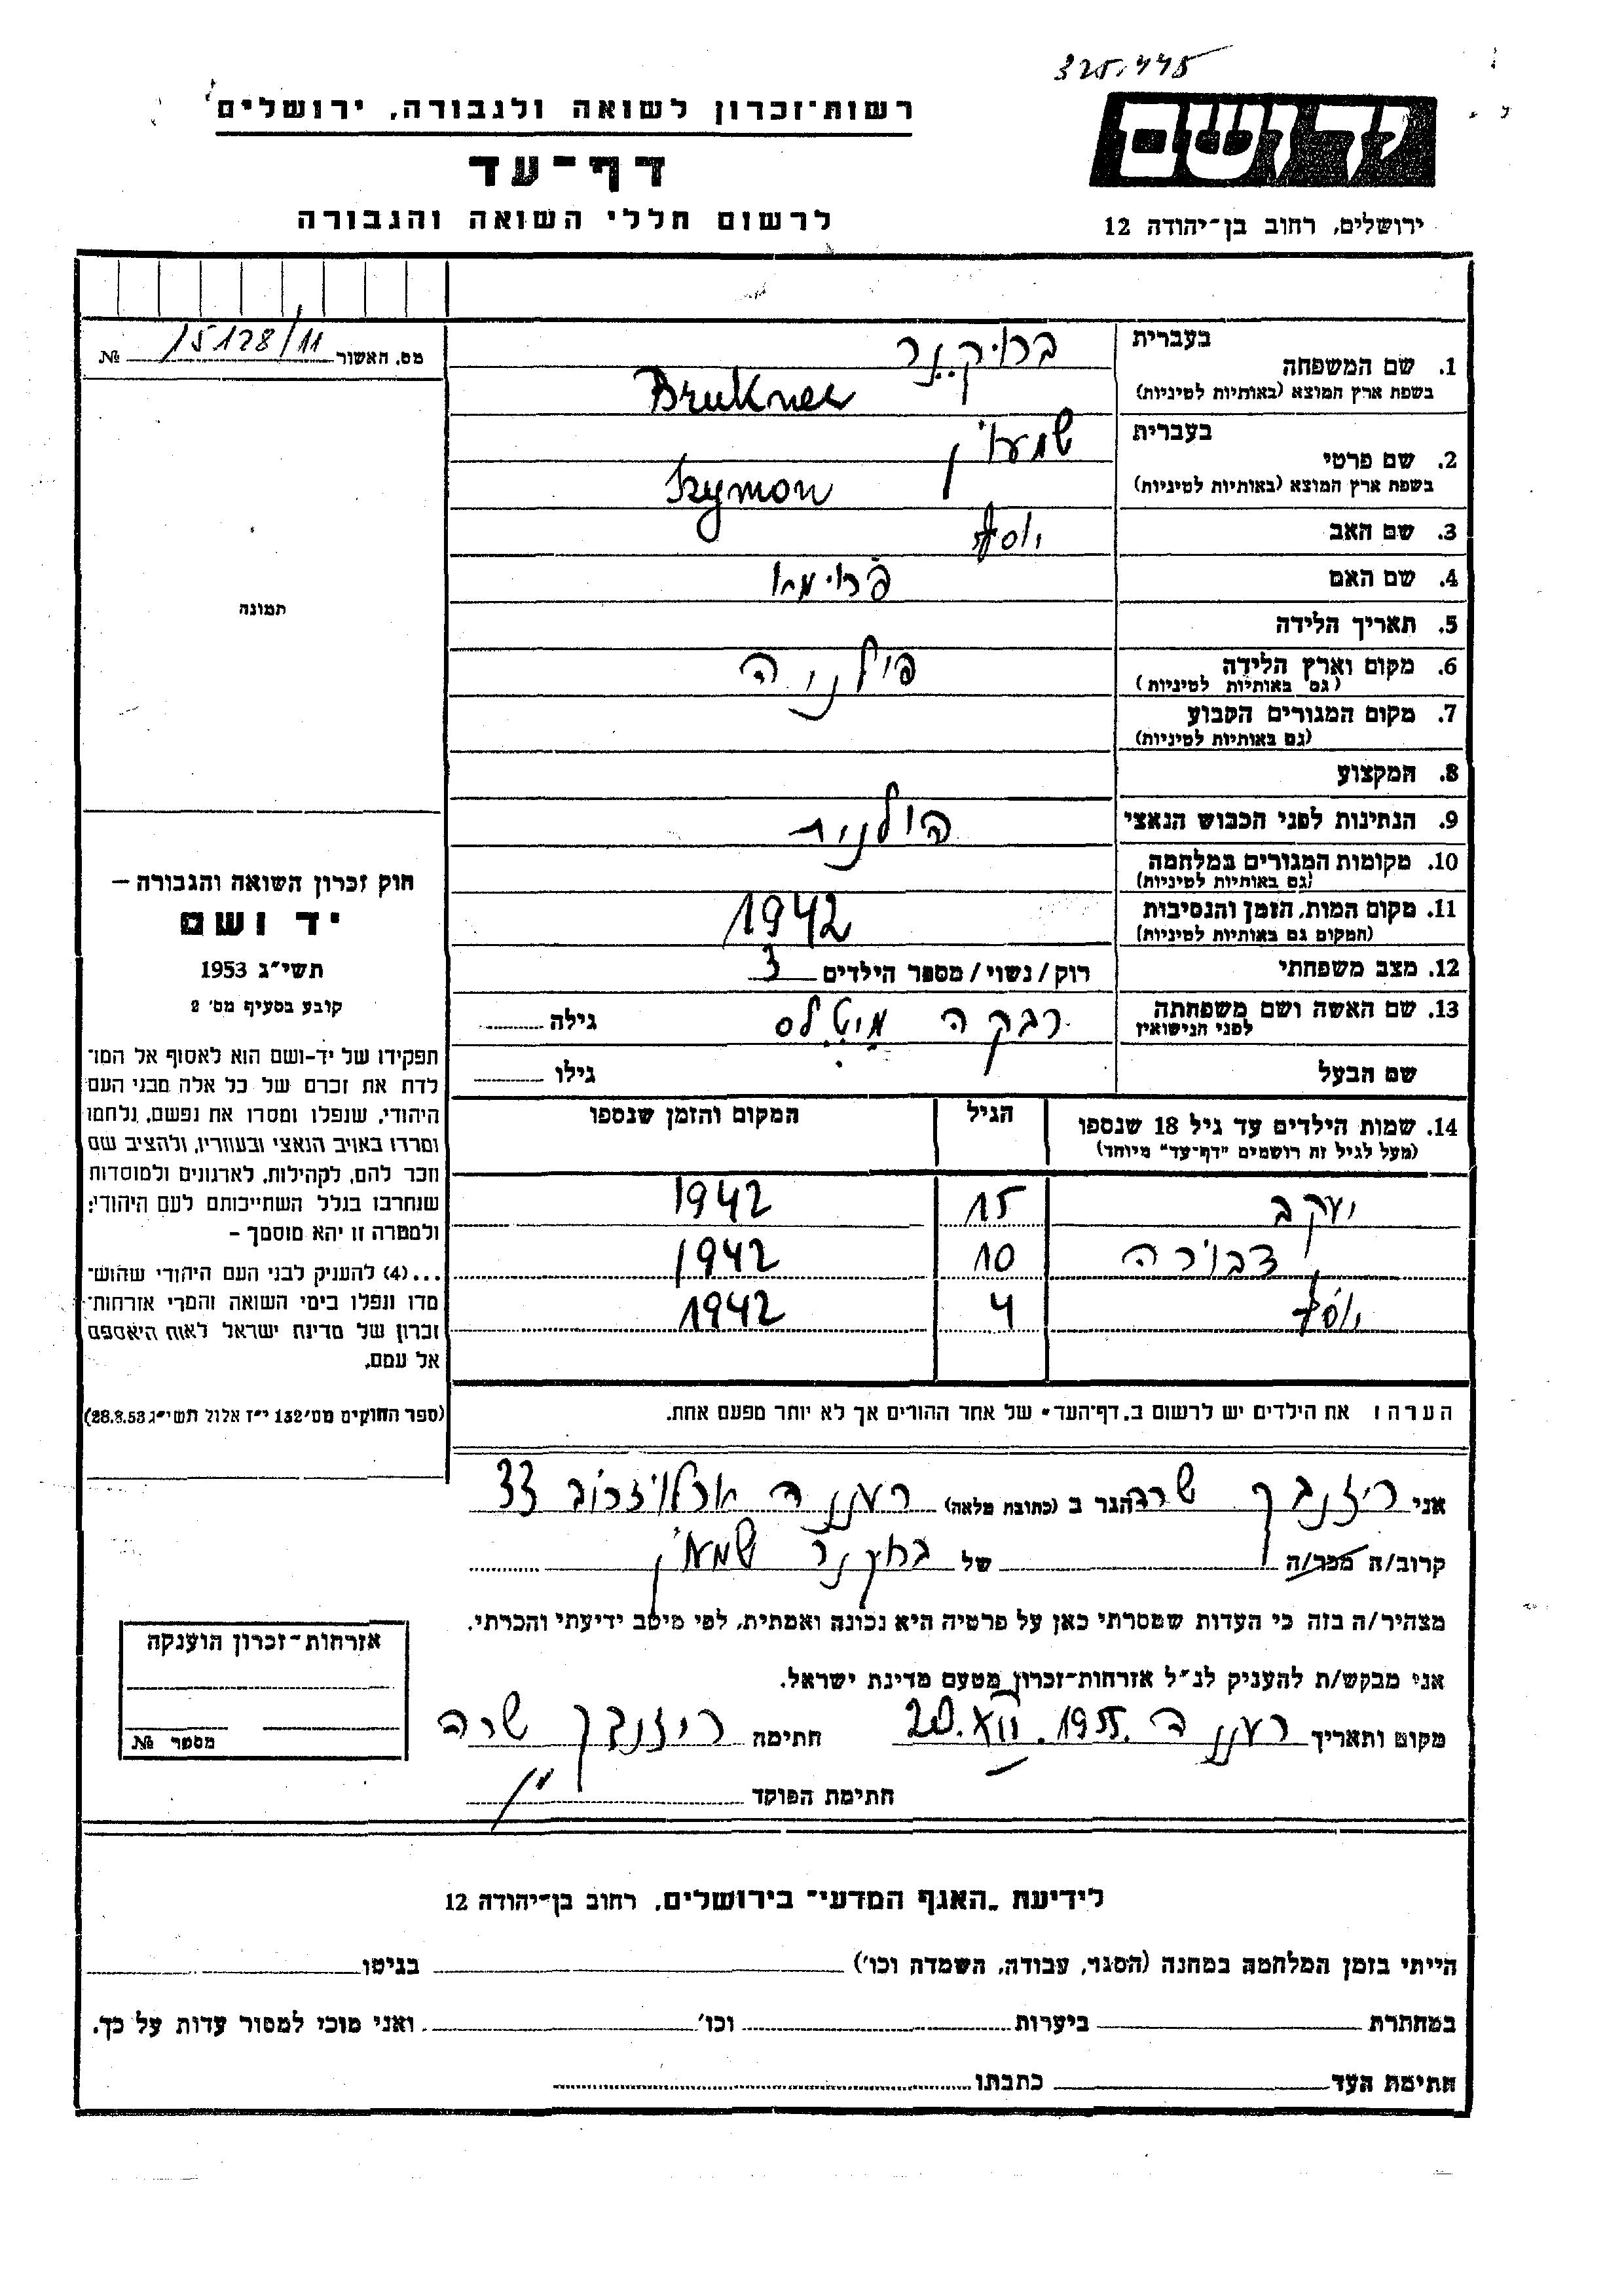 325.445
יד ושם
ירושלים, רחוב בן־יהודה 12
רשות־זכרון לשואה ולגבורה, ירושלים
דף־עד
לרשום חללי השואה והגבורה
מס. האשור 15128/11 №
תמונה
חוק זכרון השואה והגבורה –
יד ושם
תשי״ג 1953
קובע בסעיף מס׳ 2
תפקידו של יד-ושם הוא לאסוף אל המו־
לדת את זכרם של כל אלה מבני העם
היהודי, שנפלו ומסרו את נפשם, נלחמו
ומרדו באויב הנאצי ובעוזריו, ולהציב שם
וזכר להם, לקהילות, לארגונים ולמוסדות
שנחרבו בגלל השתייכותם לעם היהודי;
ולמטרה זו יהא מוסמך –
...(4) להעניק לבני העם היהודי שהוש־
מדו ונפלו בימי השואה והמרי אזרחות־
זכרון של מדינת ישראל לאות היאספם
אל עמם.
(ספר החוקים מס׳ 132 י״ז אלול תשי״ג 28.8.53)
בעברית ברוקנר
1. שם המשפחה
בשפת ארץ המוצא (באותיות לטיניות) Brukner
בעברית שמעון
2. שם פרטי
בשפת ארץ המוצא (באותיות לטיניות) Szymon
3. שם האב יוסף
4. שם האם
5. תאריך הלידה
6. מקום וארץ הלידה פולניה
(גם באותיות לטיניות)
7. מקום המגורים הקבוע
(גם באותיות לטיניות)
8. המקצוע
9. הנתינות לפני הכבוש הנאצי פולנית
10. מקומות המגורים במלחמה
(גם באותיות לטיניות)
11. מקום המות, הזמן והנסיבות 1942
(המקום גם באותיות לטיניות)
12. מצב משפחתי רוק/נשוי/מספר הילדים 3
13. שם האשה ושם משפחתה רבקה מיטלס גילה
לפני הנישואין
שם הבעל גילו
14. שמות הילדים עד גיל 18 שנספו הגיל המקום והזמן שנספו
(מעל לגיל זה רושמים "דף־עד" מיוחד)
יעקב 15 1942
דבורה 10 1942
יוסף 4 1942
הערה: את הילדים יש לרשום ב„דף־העד" של אחד ההורים אך לא יותר מפעם אחת.
אני ריזנבך שרה הגר ב (כתובת מלאה) רעננה ארלוזרוב 33
קרוב/ה מכר/ה של ברוקנר שמעון
מצהיר/ה בזה כי העדות שמסרתי כאן על פרטיה היא נכונה ואמתית, לפי מיטב ידיעתי והכרתי.
אני מבקש/ת להעניק לנ״ל אזרחות־זכרון מטעם מדינת ישראל.
מקום ותאריך רעננה 20.XII.1955. חתימה ריזנבך שרה
חתימת הפוקד
אזרחות־זכרון הוענקה
מספר №
לידיעת „האגף המדעי" בירושלים, רחוב בן־יהודה 12
הייתי בזמן המלחמה במחנה (הסגר, עבודה, השמדה וכו׳) בגיטו
במחתרת ביערות וכו׳ ואני מוכן למסור עדות על כך.
חתימת העד כתבתו